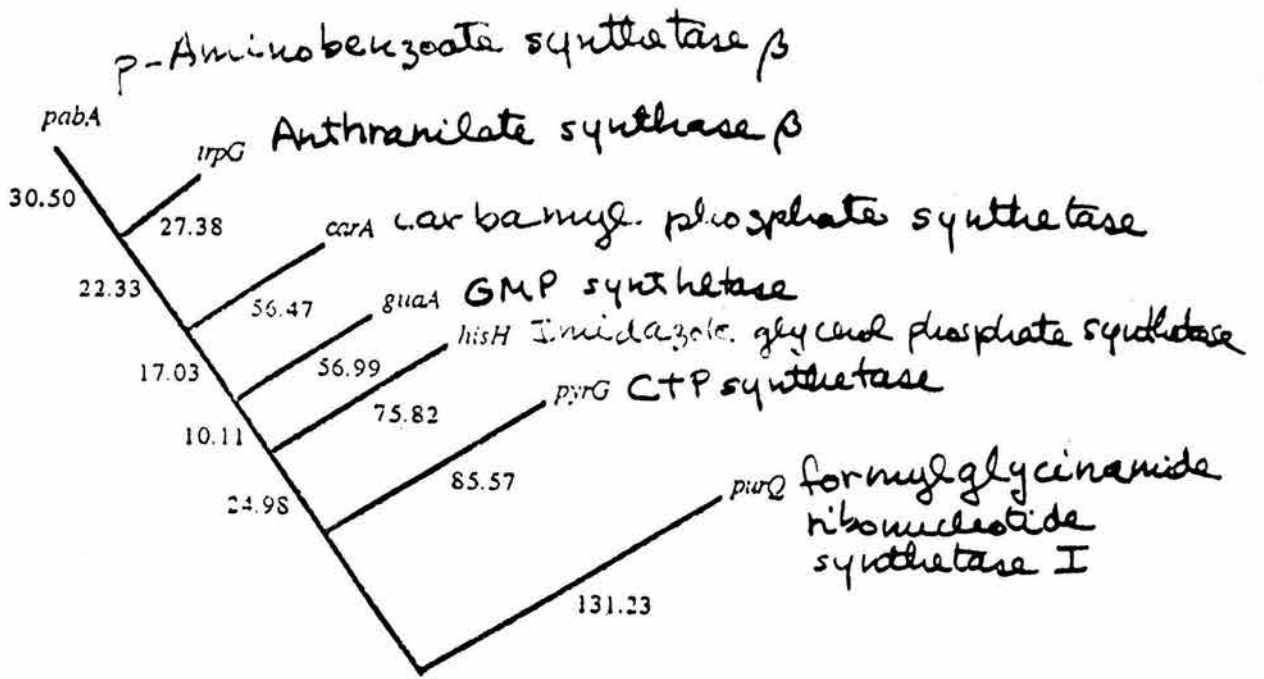 p-Aminobenzoate synthetase β
pabA
trpG Anthranilate synthase β
30.50
27.38
carA carbamyl phosphate synthetase
22.33
56.47
guaA GMP synthetase
hisH Imidazole glycerol phosphate synthetase
17.03
56.99
pyrG CTP synthetase
75.82
10.11
85.57
24.98
purQ formylglycinamide
ribonucleotide
synthetase I
131.23